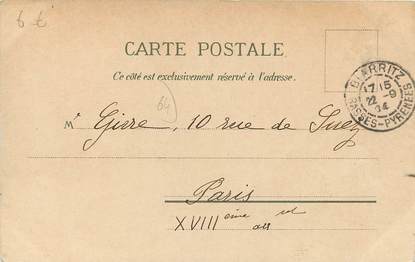 6 €
CARTE POSTALE
Ce côté est exclusivement réservé à l'adresse.
BIARRITZ
17 15
22 -9
04
BASSES-PYRENEES
64
M Givre, 10 rue de Suez
Paris
XVIIIème arr